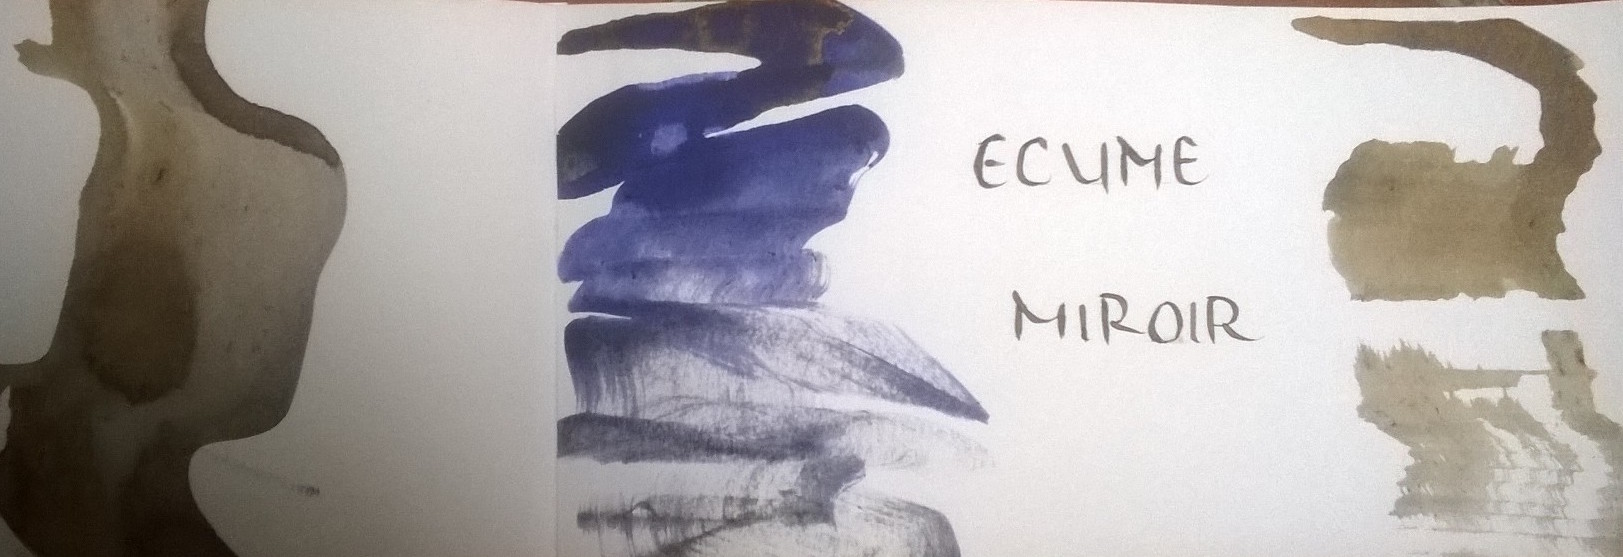 ECUME
MIROIR